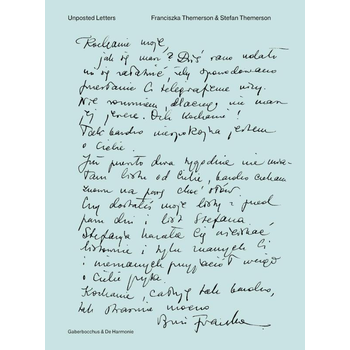 Unposted Letters
Franciszka Themerson & Stefan Themerson
Kochanie moje,
jak się masz? Dziś rano udało
mi się załatwić, żeby spowodowano
przesłanie Ci telegraficznie wizy.
Nie rozumiem, dlaczego nie masz
jej jeszcze. Och kochanie!
Tak bardzo niespokojna jestem
o Ciebie.
Już prawie dwa tygodnie nie mia-
łam listu od Ciebie, bardzo czekam
znowu na parę choć słów.
Czy dostałeś moje listy z przed
paru dni i list Stefana
Stefania kazała Cię uściskać
listownie i tylu znanych Ci
i nieznanych przyjaciół wciąż
o Ciebie pyta.
Kochanie, całuję tak bardzo,
tak strasznie mocno
Franciszka
Gaberbocchus & De Harmonie